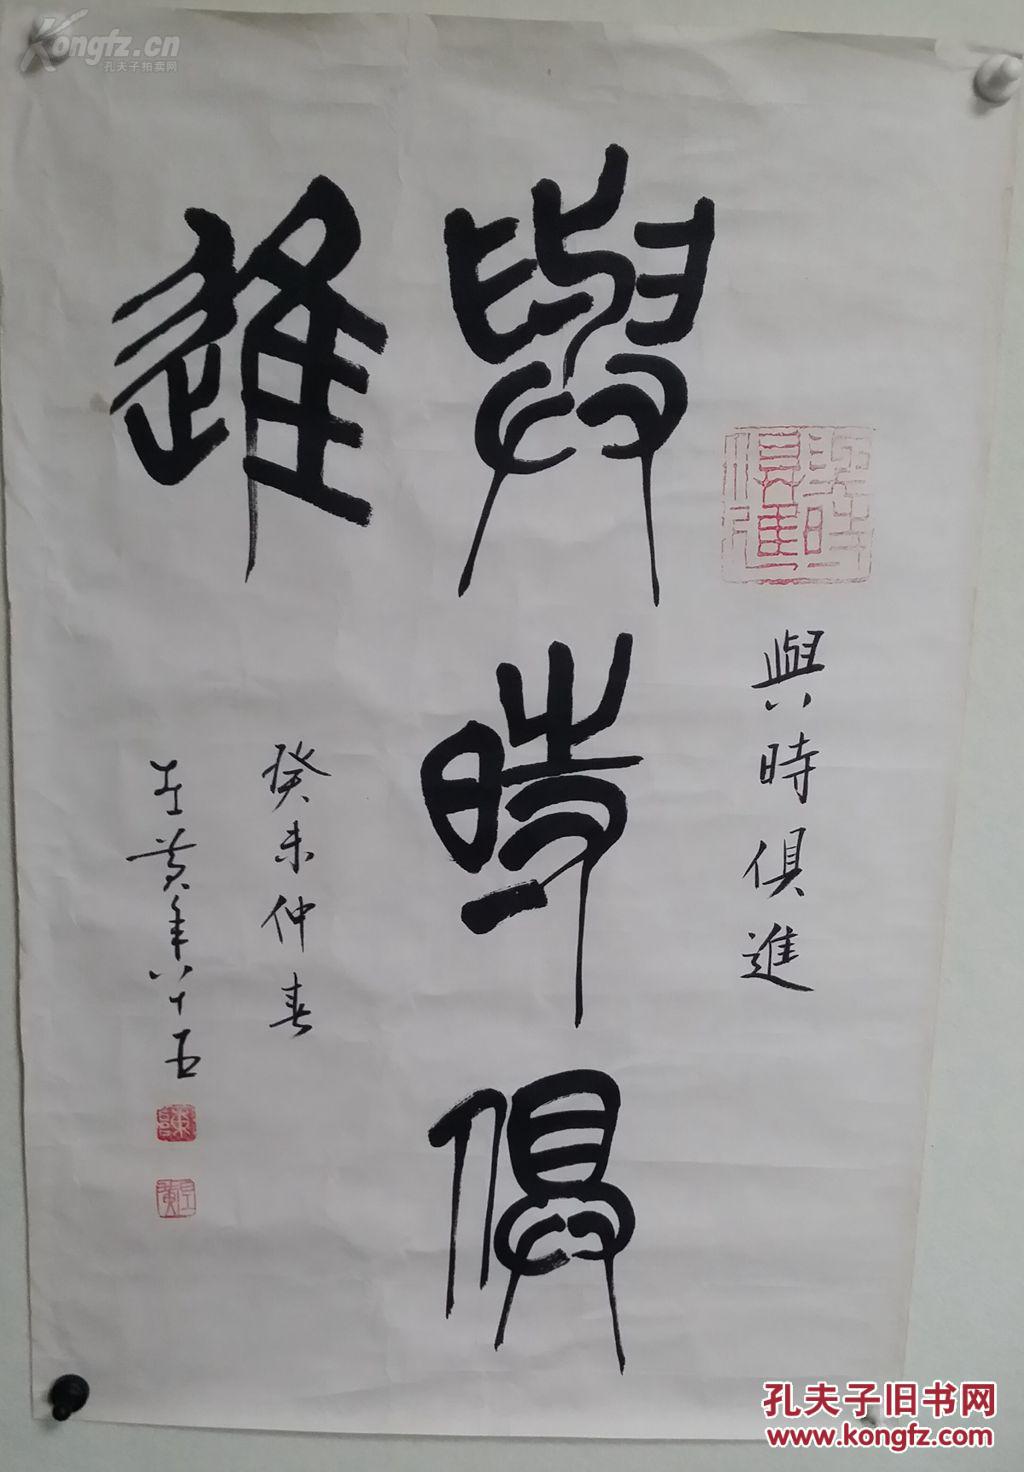 與時俱
進
與時俱進
癸未仲春
年八十五
Kongfz.cn
孔夫子拍卖网
孔夫子旧书网
www.kongfz.com